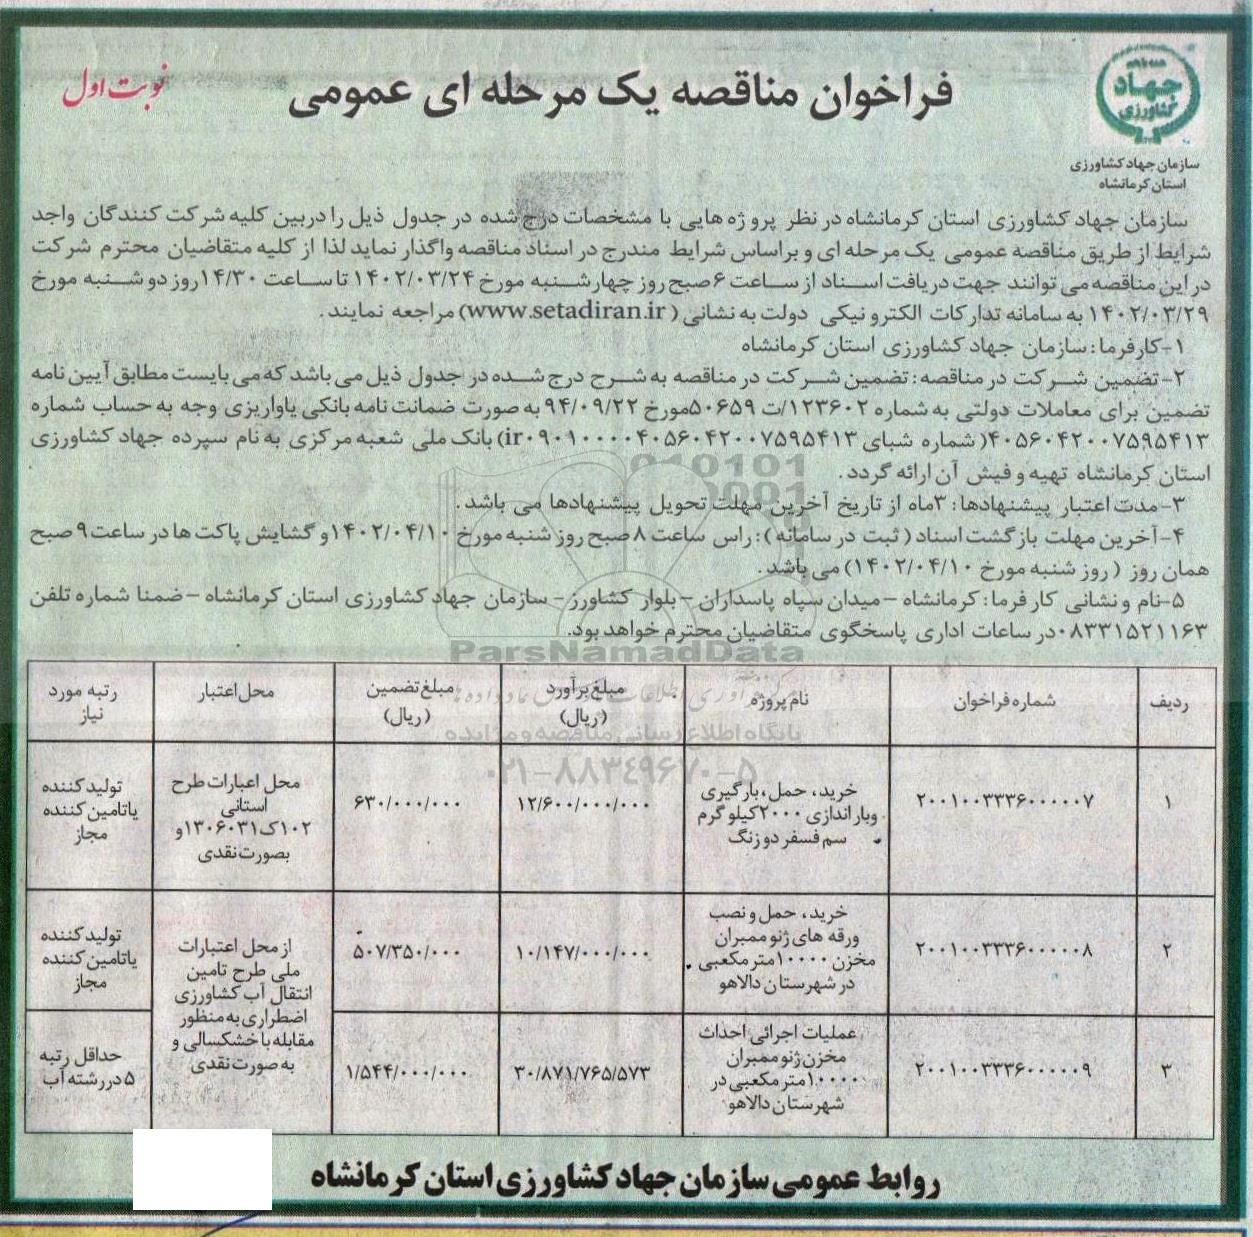 جهاد
کشاورزی
سازمان جهاد کشاورزی
استان کرمانشاه
فراخوان مناقصه یک مرحله ای عمومی
نوبت اول
سازمان جهاد کشاورزی استان کرمانشاه در نظر پروژه هایی با مشخصات درج شده در جدول ذیل را دربین کلیه شرکت کنندگان واجد
شرایط از طریق مناقصه عمومی یک مرحله ای و براساس شرایط مندرج در اسناد مناقصه واگذار نماید لذا از کلیه متقاضیان محترم شرکت
در این مناقصه می توانند جهت دریافت اسناد از ساعت ۶ صبح روز چهارشنبه مورخ ۱۴۰۲/۰۳/۲۴ تا ساعت ۱۴/۳۰ روز دو شنبه مورخ
۱۴۰۲/۰۳/۲۹ به سامانه تدارکات الکترونیکی دولت به نشانی (www.setadiran.ir) مراجعه نمایند.
۱-کارفرما: سازمان جهاد کشاورزی استان کرمانشاه
۲-تضمین شرکت در مناقصه: تضمین شرکت در مناقصه به شرح درج شده در جدول ذیل می باشد که می بایست مطابق آیین نامه
تضمین برای معاملات دولتی به شماره ۱۲۳۶۰۲/ت ۵۰۶۵۹ مورخ ۹۴/۰۹/۲۲ به صورت ضمانت نامه بانکی یا واریزی وجه به حساب شماره
۴۰۵۶۰۴۲۰۰۷۵۹۵۴۱۳( شماره شبای ir۰۹۰۱۰۰۰۰۴۰۵۶۰۴۲۰۰۷۵۹۵۴۱۳) بانک ملی شعبه مرکزی به نام سپرده جهاد کشاورزی
استان کرمانشاه تهیه و فیش آن ارائه گردد.
۳-مدت اعتبار پیشنهادها: ۳ماه از تاریخ آخرین مهلت تحویل پیشنهادها می باشد.
۴-آخرین مهلت بازگشت اسناد ( ثبت در سامانه ): راس ساعت ۸ صبح روز شنبه مورخ ۱۴۰۲/۰۴/۱۰ و گشایش پاکت ها در ساعت ۹ صبح
همان روز ( روز شنبه مورخ ۱۴۰۲/۰۴/۱۰) می باشد.
۵-نام و نشانی کارفرما: کرمانشاه –میدان سپاه پاسداران –بلوار کشاورز- سازمان جهاد کشاورزی استان کرمانشاه –ضمنا شماره تلفن
۰۸۳۳۱۵۲۱۱۶۳ در ساعات اداری پاسخگوی متقاضیان محترم خواهد بود.
ParsNamadData
پایگاه اطلاع رسانی مناقصه و مزایده
۰۲۱-۸۸۳۴۹۶۷۰-۵
ردیف شماره فراخوان نام پروژه مبلغ برآورد (ریال) مبلغ تضمین (ریال) محل اعتبار رتبه مورد نیاز
۱ ۲۰۰۱۰۰۳۳۳۶۰۰۰۰۰۷ خرید، حمل، بارگیری وبار اندازی ۲۰۰۰کیلو گرم سم فسفر دو زنگ ۱۲/۶۰۰/۰۰۰/۰۰۰ ۶۳۰/۰۰۰/۰۰۰ محل اعبارات طرح استانی ۱۳۰۶۰۳۱ک۱۰۲ و بصورت نقدی تولید کننده یاتامین کننده مجاز
۲ ۲۰۰۱۰۰۳۳۳۶۰۰۰۰۰۸ خرید، حمل و نصب ورقه های ژئو ممبران مخزن ۱۰۰۰۰ متر مکعبی در شهرستان دالاهو ۱۰/۱۴۷/۰۰۰/۰۰۰ ۵۰۷/۳۵۰/۰۰۰ از محل اعتبارات ملی طرح تامین انتقال آب کشاورزی اضطراری به منظور مقابله با خشکسالی و به صورت نقدی تولید کننده یاتامین کننده مجاز
۳ ۲۰۰۱۰۰۳۳۳۶۰۰۰۰۰۹ عملیات اجرائی احداث مخزن ژئو ممبران ۱۰۰۰۰ متر مکعبی در شهرستان دالاهو ۳۰/۸۷۱/۷۶۵/۵۷۳ ۱/۵۴۴/۰۰۰/۰۰۰ حداقل رتبه ۵ در رشته آب
روابط عمومی سازمان جهاد کشاورزی استان کرمانشاه